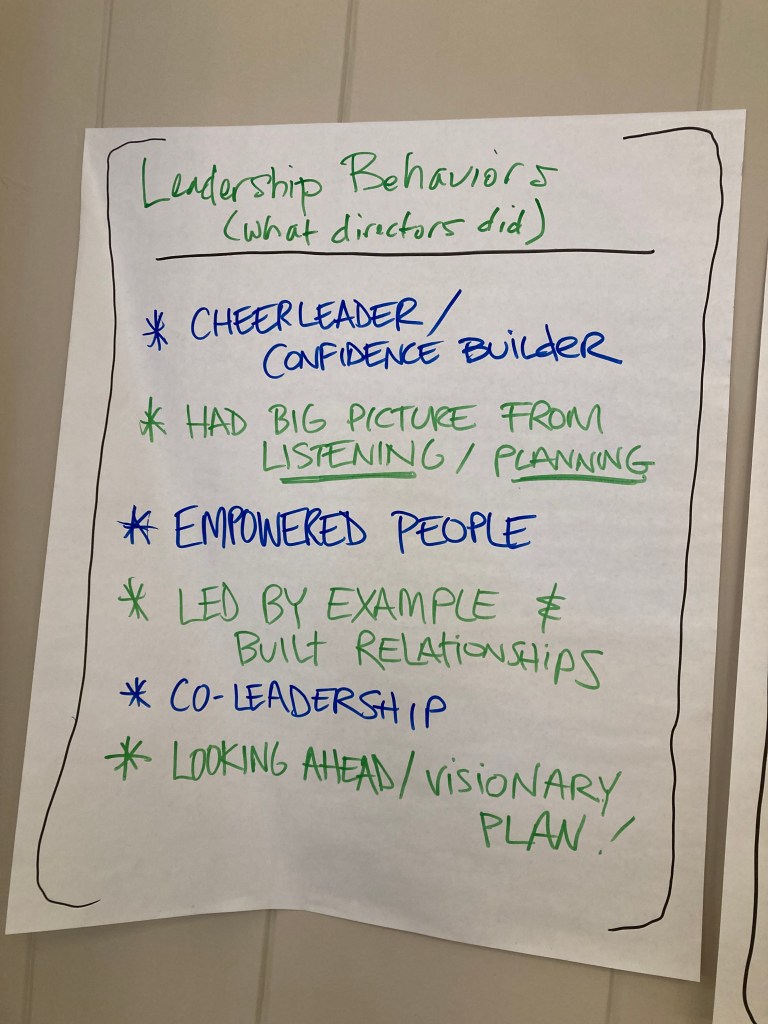 Leadership Behaviors
(what directors did)
* CHEERLEADER/
CONFIDENCE BUILDER
* HAD BIG PICTURE FROM
LISTENING / PLANNING
* EMPOWERED PEOPLE
* LED BY EXAMPLE &
BUILT RELATIONSHIPS
* CO-LEADERSHIP
* LOOKING AHEAD/VISIONARY
PLAN!